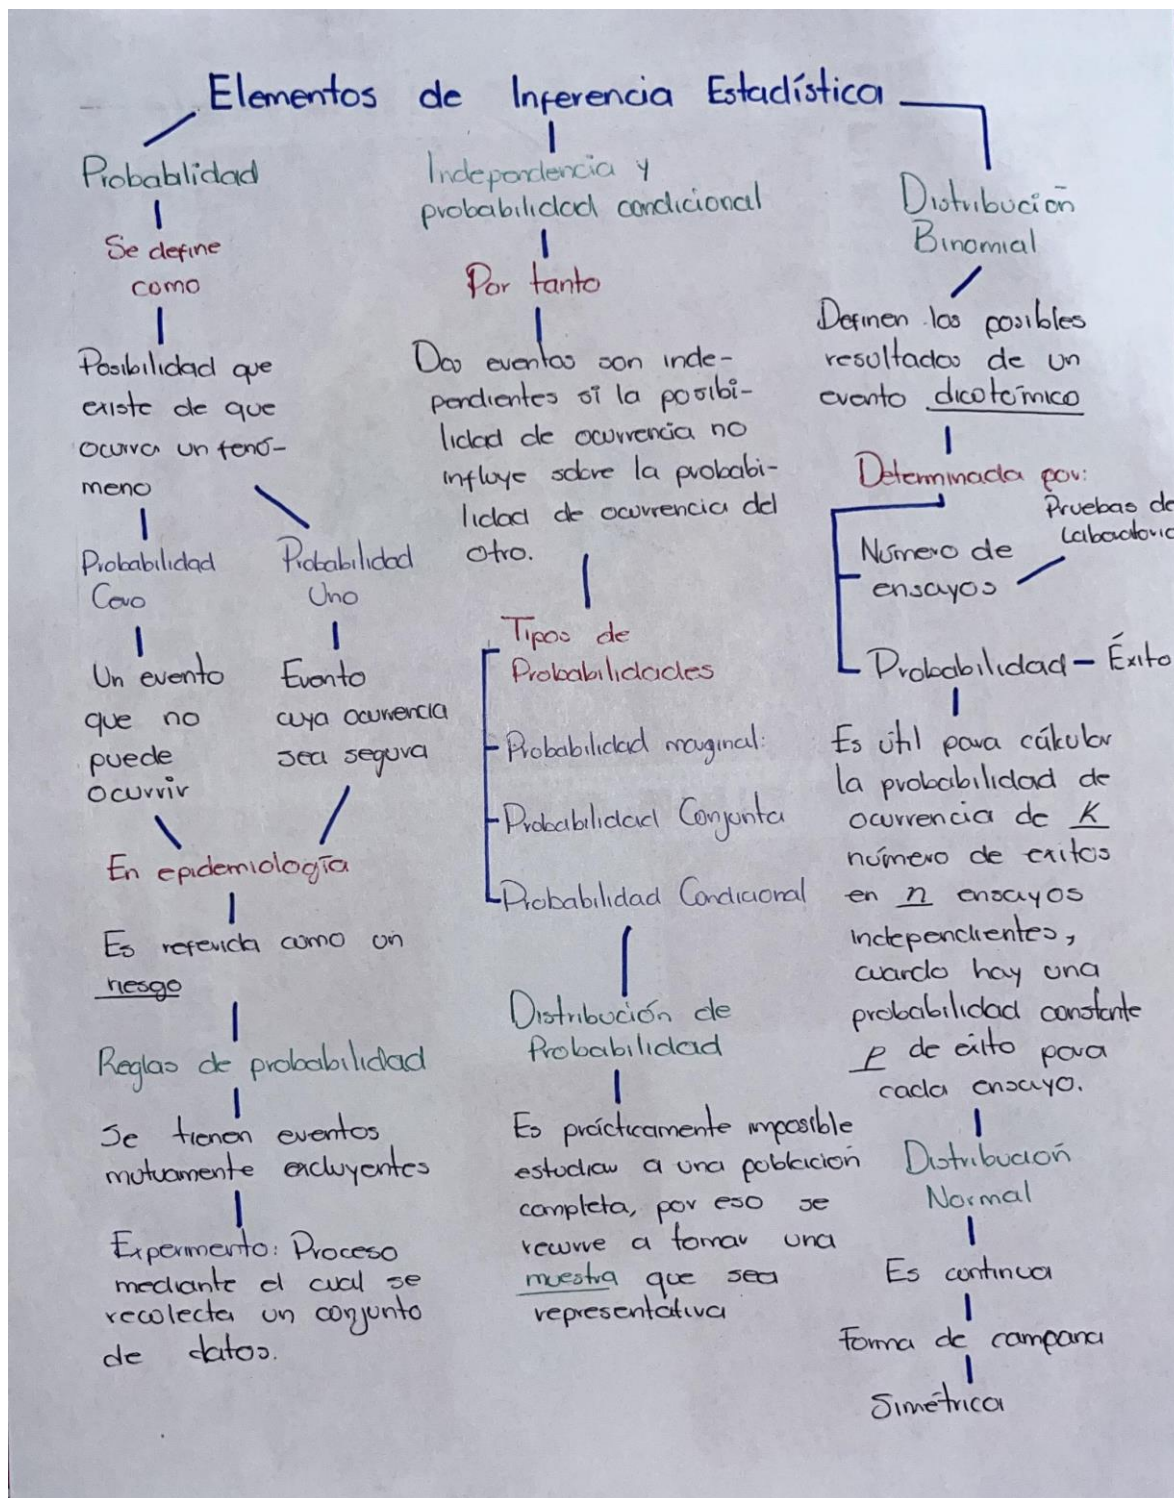 Elementos de Inferencia Estadística
Probabilidad
Se define
como
Posibilidad que
existe de que
ocurra un fenó-
meno
Probabilidad
Cero
Un evento
que no
puede
ocurrir
Probabilidad
Uno
Evento
cuya ocurrencia
sea segura
En epidemiología
Es referida como un
riesgo
Reglas de probabilidad
Se tienen eventos
mutuamente excluyentes
Experimento: Proceso
mediante el cual se
recolecta un conjunto
de datos.
Independencia y
probabilidad condicional
Por tanto
Dos eventos son inde-
pendientes si la posibi-
lidad de ocurrencia no
influye sobre la probabi-
lidad de ocurrencia del
otro.
Tipos de
Probabilidades
Probabilidad marginal:
Probabilidad Conjunta
Probabilidad Condicional
Distribución de
Probabilidad
Es prácticamente imposible
estudiar a una población
completa, por eso se
recurre a tomar una
muestra que sea
representativa
Distribución
Binomial
Definen los posibles
resultados de un
evento dicotómico
Determinada por:
Número de
ensayos
Pruebas de
Laboratorio
Probabilidad - Éxito
Es útil para cálcular
la probabilidad de
ocurrencia de K
número de exitos
en n ensayos
independientes,
cuando hay una
probabilidad constante
P de éxito para
cada ensayo.
Distribución
Normal
Es continua
Forma de campana
Simétrica